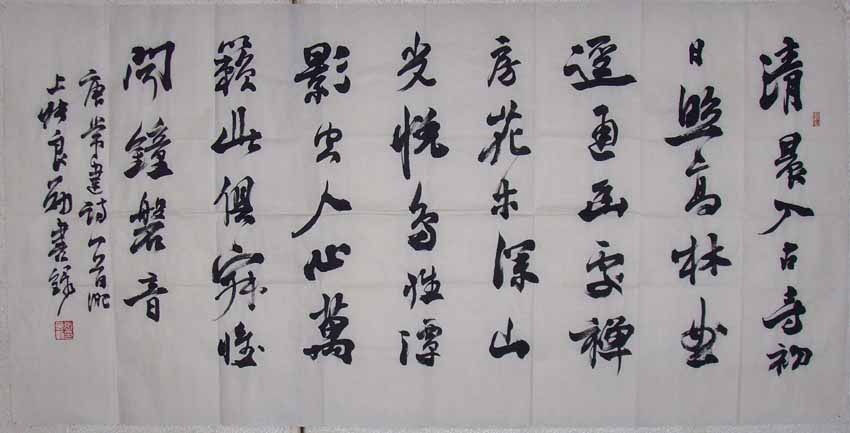 清晨入古寺初
日照高林曲
逕通幽處禪
房花木深山
光悦鳥性潭
影空人心萬
籟此俱寂惟
聞鐘磬音
唐常建詩一首
良書